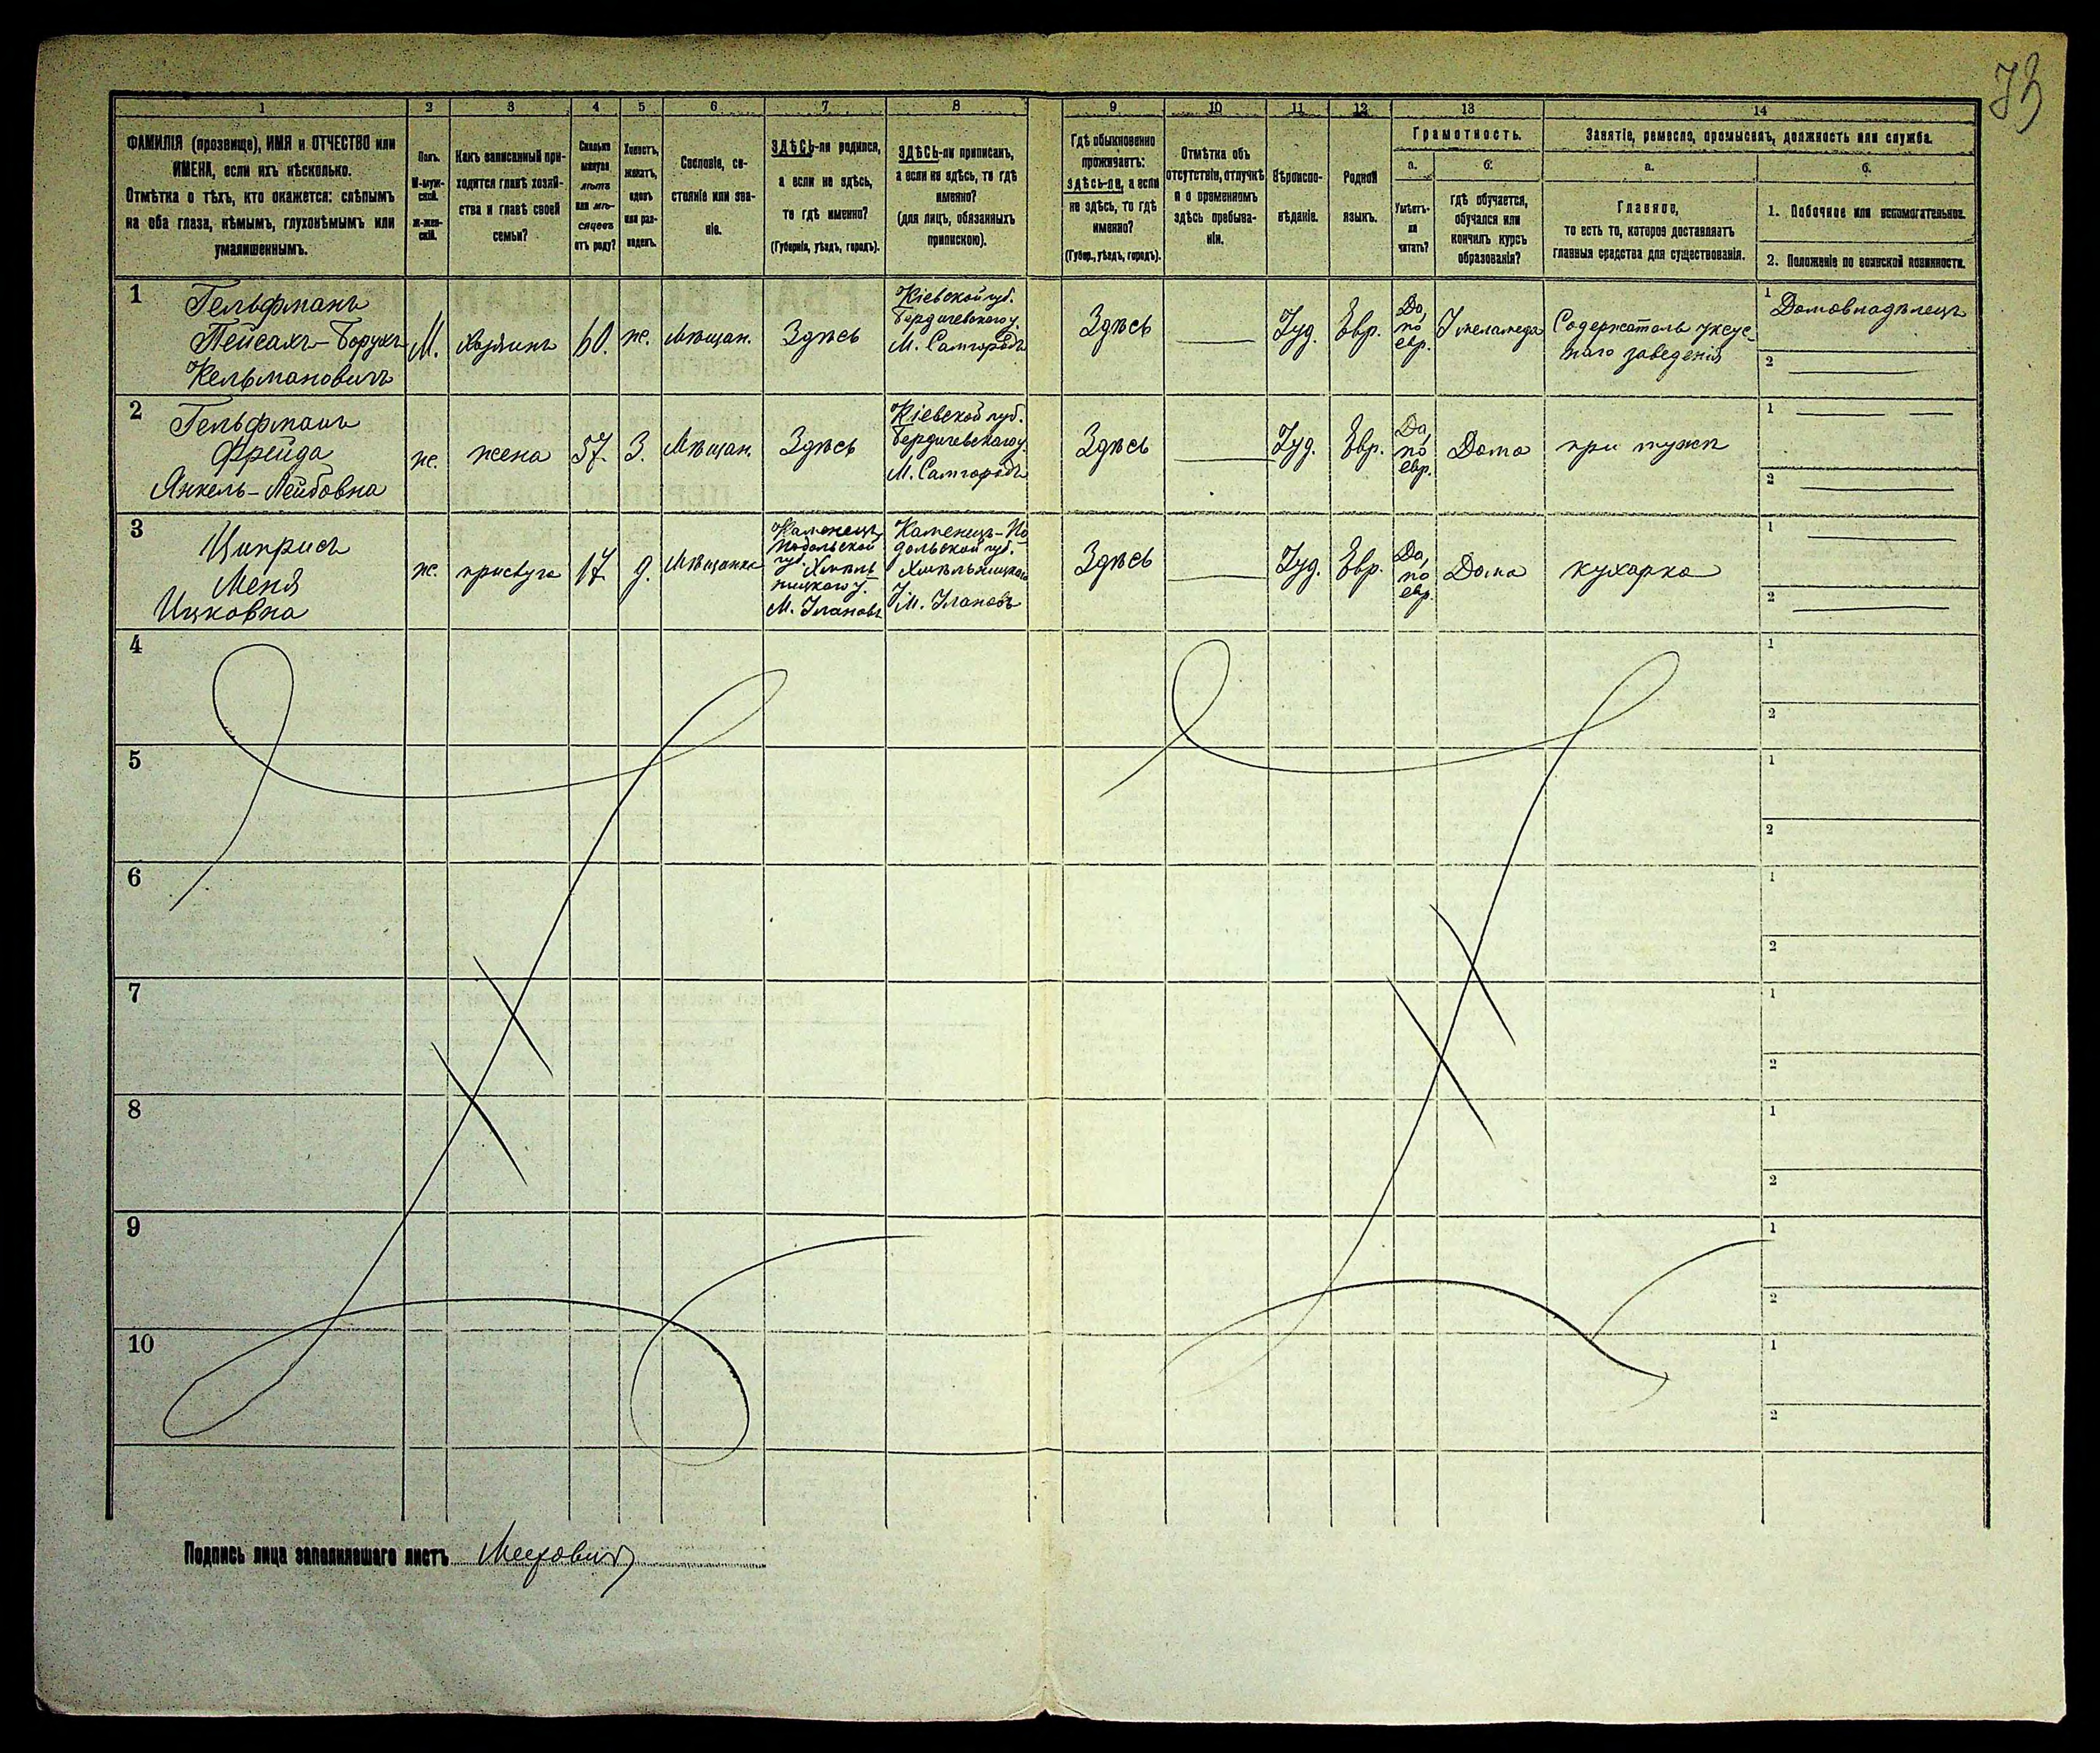 73
1 2 3 4 5 6 7 8 9 10 11 12 13 14
ФАМИЛІЯ (прозвище), ИМЯ и ОТЧЕСТВО или
ИМЕНА, если ихъ нѣсколько.
Отмѣтка о тѣхъ, кто окажется: слѣпымъ
на оба глаза, нѣмымъ, глухонѣмымъ или
умалишеннымъ.
Полъ.
М-муж-
ской.
Ж-жен-
скій.
Какъ записанный при-
ходится главѣ хозяй-
ства и главѣ своей
семьи?
Сколько
минуло
лѣтъ
или мѣ-
сяцевъ
отъ роду?
Холостъ,
женатъ,
вдовъ
или раз-
веденъ.
Сословіе, со-
стояніе или зва-
ніе.
ЗДѢСЬ-ли родился,
а если не здѣсь,
то гдѣ именно?
(Губернія, уѣздъ, городъ).
ЗДѢСЬ-ли приписанъ,
а если не здѣсь, то гдѣ
именно?
(для лицъ, обязанныхъ
припискою).
Гдѣ обыкновенно
проживаетъ:
здѣсь-ли, а если
не здѣсь, то гдѣ
именно?
(Губер., уѣздъ, городъ).
Отмѣтка объ
отсутствіи, отлучкѣ
и о временномъ
здѣсь пребыва-
ніи.
Вѣроиспо-
вѣданіе.
Родной
языкъ.
Грамотность.
а.
Умѣетъ-
ли
читать?
б.
Гдѣ обучается,
обучался или
кончилъ курсъ
образованія?
Занятіе, ремесло, промыселъ, должность или служба.
а.
Главное,
то есть то, которое доставляетъ
главныя средства для существованія.
б.
1. Побочное или вспомогательное.
2. Положеніе по воинской повинности.
1
Гельфманъ
Пейсахъ-Борухъ
Кельмановичъ
М.
хозяинъ
60.
ж.
Мѣщан.
Здѣсь
Кіевской губ.
Бердичевскаго у.
М. Самгородъ
Здѣсь
Іуд.
Евр.
Да,
по
евр.
У меламеда
Содержатель уксус-
наго заведенія
1 Домовладѣлецъ
2
2
Гельфманъ
Фрейда
Янкель-Лейбовна
ж.
жена
57.
З.
Мѣщан.
Здѣсь
Кіевской губ.
Бердичевскаго у.
М. Самгородъ
Здѣсь
Іуд.
Евр.
Да,
по
евр.
Дома
при мужѣ
1
2
3
Циприсъ
Меня
Ицковна
ж.
прислуга
17
д.
Мѣщанка
Каменецъ
Подольской
губ. Хмѣль
ницкаго у.
М. Улановъ
Каменецъ-По
дольской губ.
Хмѣльницкаго
у.
М. Улановъ
Здѣсь
Іуд.
Евр.
Да,
по
евр.
Дома
кухарка
1
2
4
1
2
5
1
2
6
1
2
7
1
2
8
1
2
9
1
2
10
1
2
Подпись лица заполнявшаго листъ